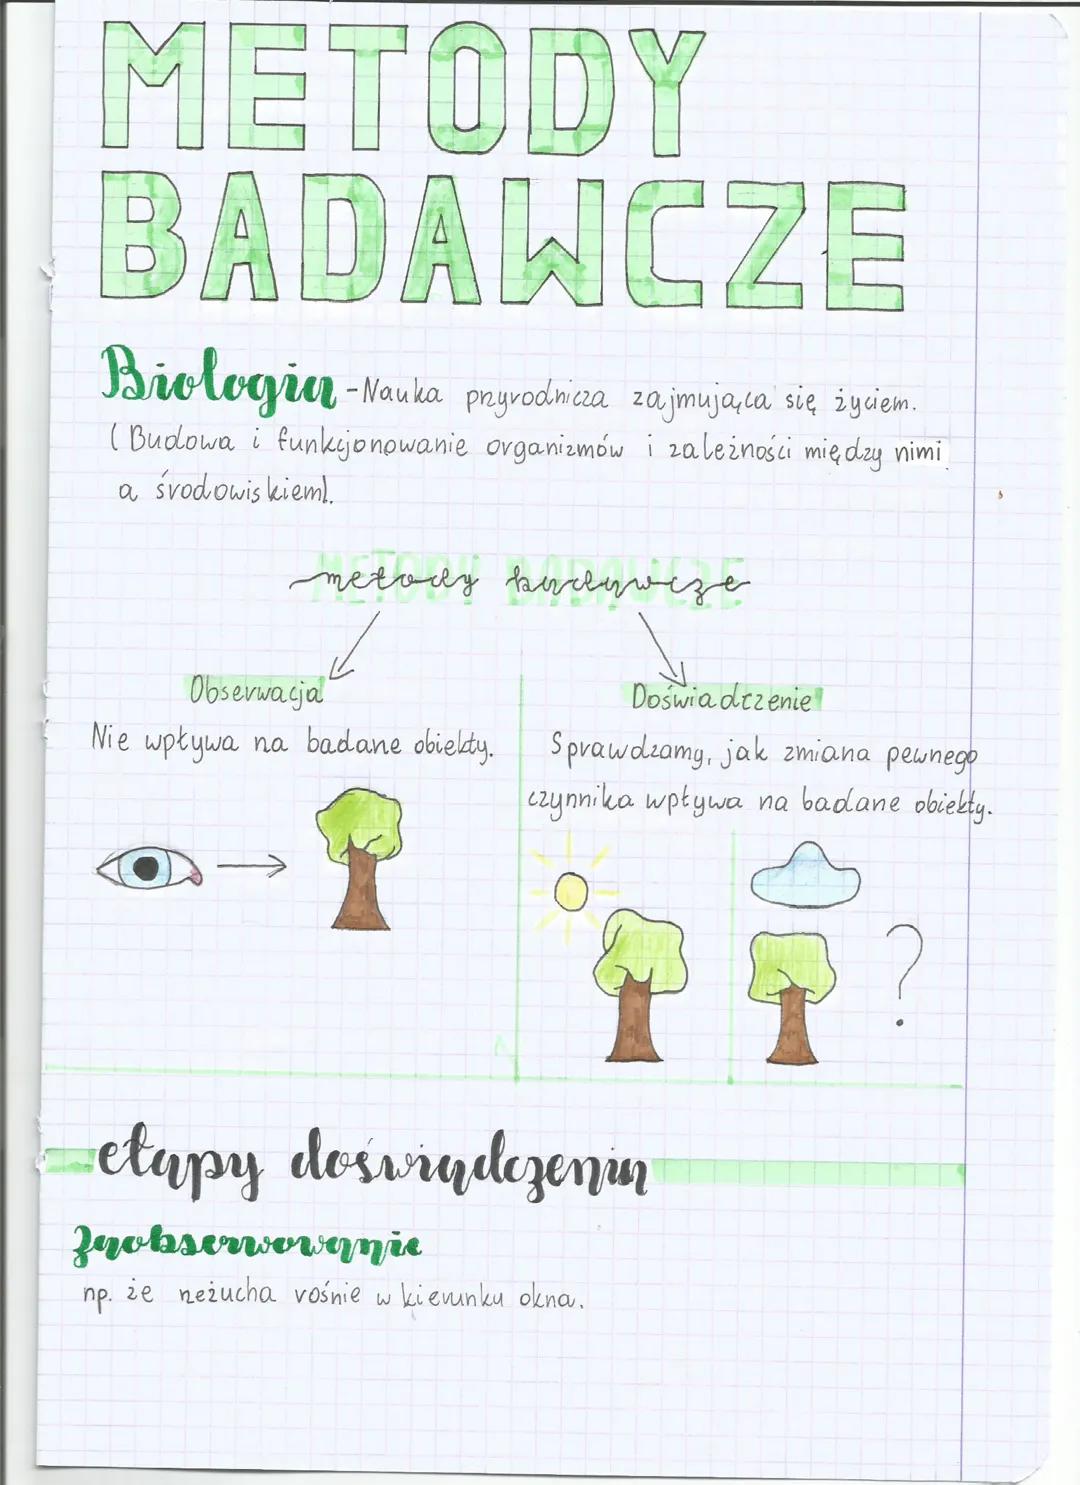 METODY
BADAWCZE
Biologia - Nauka przyrodnicza zajmująca się życiem.
(Budowa i funkcjonowanie organizmów i zależności między nimi
a środowiskiem).
metody badawcze
Obserwacja
Doświadczenie
Nie wpływa na badane obiekty.
Sprawdzamy, jak zmiana pewnego
czynnika wpływa na badane obiekty.
?
etapy doświadczenia
zaobserwowanie
np. że rzeżucha rośnie w kierunku okna.